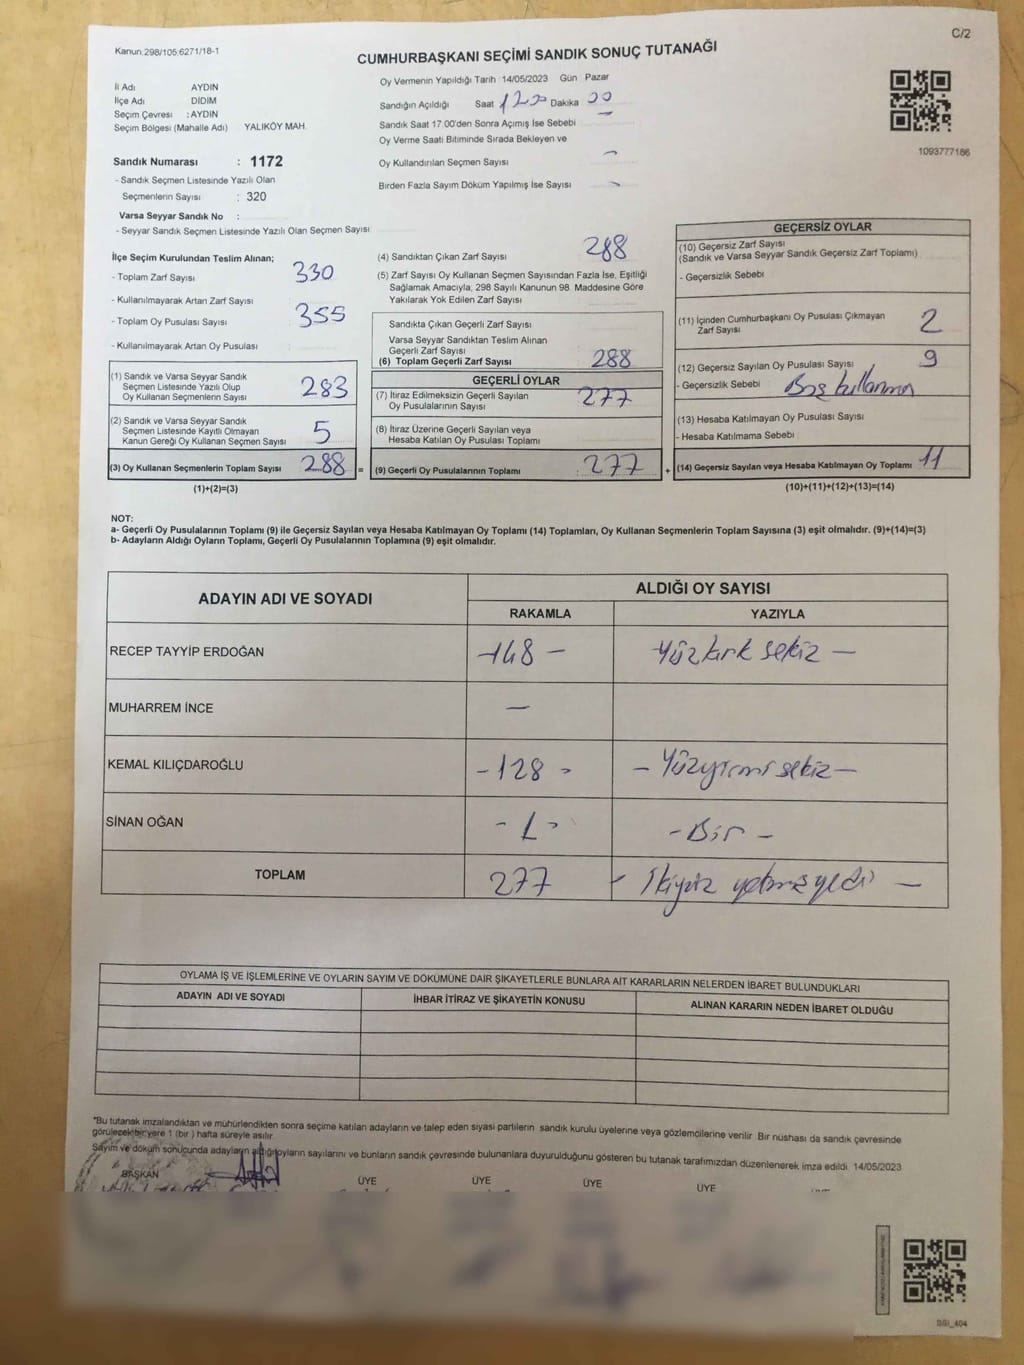 Kanun.298/105.6271/18-1
C/2
CUMHURBAŞKANI SEÇİMİ SANDIK SONUÇ TUTANAĞI
İl Adı AYDIN
İlçe Adı DİDİM
Seçim Çevresi : AYDIN
Seçim Bölgesi (Mahalle Adı) YALIKÖY MAH.
Oy Vermenin Yapıldığı Tarih 14/05/2023 Gün Pazar
Sandığın Açıldığı Saat Dakika
Sandık Saat 17.00'den Sonra Açımış İse Sebebi
Oy Verme Saati Bitiminde Sırada Bekleyen ve
Oy Kullandırılan Seçmen Sayısı
Birden Fazla Sayım Döküm Yapılmış İse Sayısı
1093777186
Sandık Numarası : 1172
- Sandık Seçmen Listesinde Yazılı Olan
Seçmenlerin Sayısı : 320
Varsa Seyyar Sandık No :
- Seyyar Sandık Seçmen Listesinde Yazılı Olan Seçmen Sayısı:
İlçe Seçim Kurulundan Teslim Alınan;
- Toplam Zarf Sayısı 330
- Kullanılmayarak Artan Zarf Sayısı
- Toplam Oy Pusulası Sayısı 355
- Kullanılmayarak Artan Oy Pusulası
(1) Sandık ve Varsa Seyyar Sandık
Seçmen Listesinde Yazılı Olup
Oy Kullanan Seçmenlerin Sayısı 283
(2) Sandık ve Varsa Seyyar Sandık
Seçmen Listesinde Kayıtlı Olmayan
Kanun Gereği Oy Kullanan Seçmen Sayısı 5
(3) Oy Kullanan Seçmenlerin Toplam Sayısı 288 =
(1)+(2)=(3)
(4) Sandıktan Çıkan Zarf Sayısı 288
(5) Zarf Sayısı Oy Kullanan Seçmen Sayısından Fazla İse, Eşitliği
Sağlamak Amacıyla; 298 Sayılı Kanunun 98. Maddesine Göre
Yakılarak Yok Edilen Zarf Sayısı
Sandıkta Çıkan Geçerli Zarf Sayısı
Varsa Seyyar Sandıktan Teslim Alınan
Geçerli Zarf Sayısı
(6) Toplam Geçerli Zarf Sayısı 288
GEÇERLİ OYLAR
(7) İtiraz Edilmeksizin Geçerli Sayılan
Oy Pusulalarının Sayısı 277
(8) İtiraz Üzerine Geçerli Sayılan veya
Hesaba Katılan Oy Pusulası Toplamı
(9) Geçerli Oy Pusulalarının Toplamı : 277 +
GEÇERSİZ OYLAR
(10) Geçersiz Zarf Sayısı
(Sandık ve Varsa Seyyar Sandık Geçersiz Zarf Toplamı)
- Geçersizlik Sebebi
(11) İçinden Cumhurbaşkanı Oy Pusulası Çıkmayan
Zarf Sayısı 2
(12) Geçersiz Sayılan Oy Pusulası Sayısı 9
- Geçersizlik Sebebi Boş kullanma
(13) Hesaba Katılmayan Oy Pusulası Sayısı
- Hesaba Katılmama Sebebi
(14) Geçersiz Sayılan veya Hesaba Katılmayan Oy Toplamı 11
(10)+(11)+(12)+(13)=(14)
NOT:
a- Geçerli Oy Pusulalarının Toplamı (9) ile Geçersiz Sayılan veya Hesaba Katılmayan Oy Toplamı (14) Toplamları, Oy Kullanan Seçmenlerin Toplam Sayısına (3) eşit olmalıdır. (9)+(14)=(3)
b- Adayların Aldığı Oyların Toplamı, Geçerli Oy Pusulalarının Toplamına (9) eşit olmalıdır.
ADAYIN ADI VE SOYADI
ALDIĞI OY SAYISI
RAKAMLA YAZIYLA
RECEP TAYYİP ERDOĞAN -148- Yüzkırk sekiz -
MUHARREM İNCE -
KEMAL KILIÇDAROĞLU -128- - Yüzyirmi sekiz -
SİNAN OĞAN -1- - Bir -
TOPLAM 277 - İkiyüz yetmiş yedi -
OYLAMA İŞ VE İŞLEMLERİNE VE OYLARIN SAYIM VE DÖKÜMÜNE DAİR ŞİKAYETLERLE BUNLARA AİT KARARLARIN NELERDEN İBARET BULUNDUKLARI
ADAYIN ADI VE SOYADI İHBAR İTİRAZ VE ŞİKAYETİN KONUSU ALINAN KARARIN NEDEN İBARET OLDUĞU
*Bu tutanak imzalandıktan ve mühürlendikten sonra seçime katılan adayların ve talep eden siyasi partilerin sandık kurulu üyelerine veya gözlemcilerine verilir. Bir nüshası da sandık çevresinde
görülecek bir yere 1 (bir) hafta süreyle asılır.
Sayım ve döküm sonucunda adayların aldığı oyların sayılarını ve bunların sandık çevresinde bulunanlara duyurulduğunu gösteren bu tutanak tarafımızdan düzenlenerek imza edildi. 14/05/2023
BAŞKAN ÜYE ÜYE ÜYE ÜYE